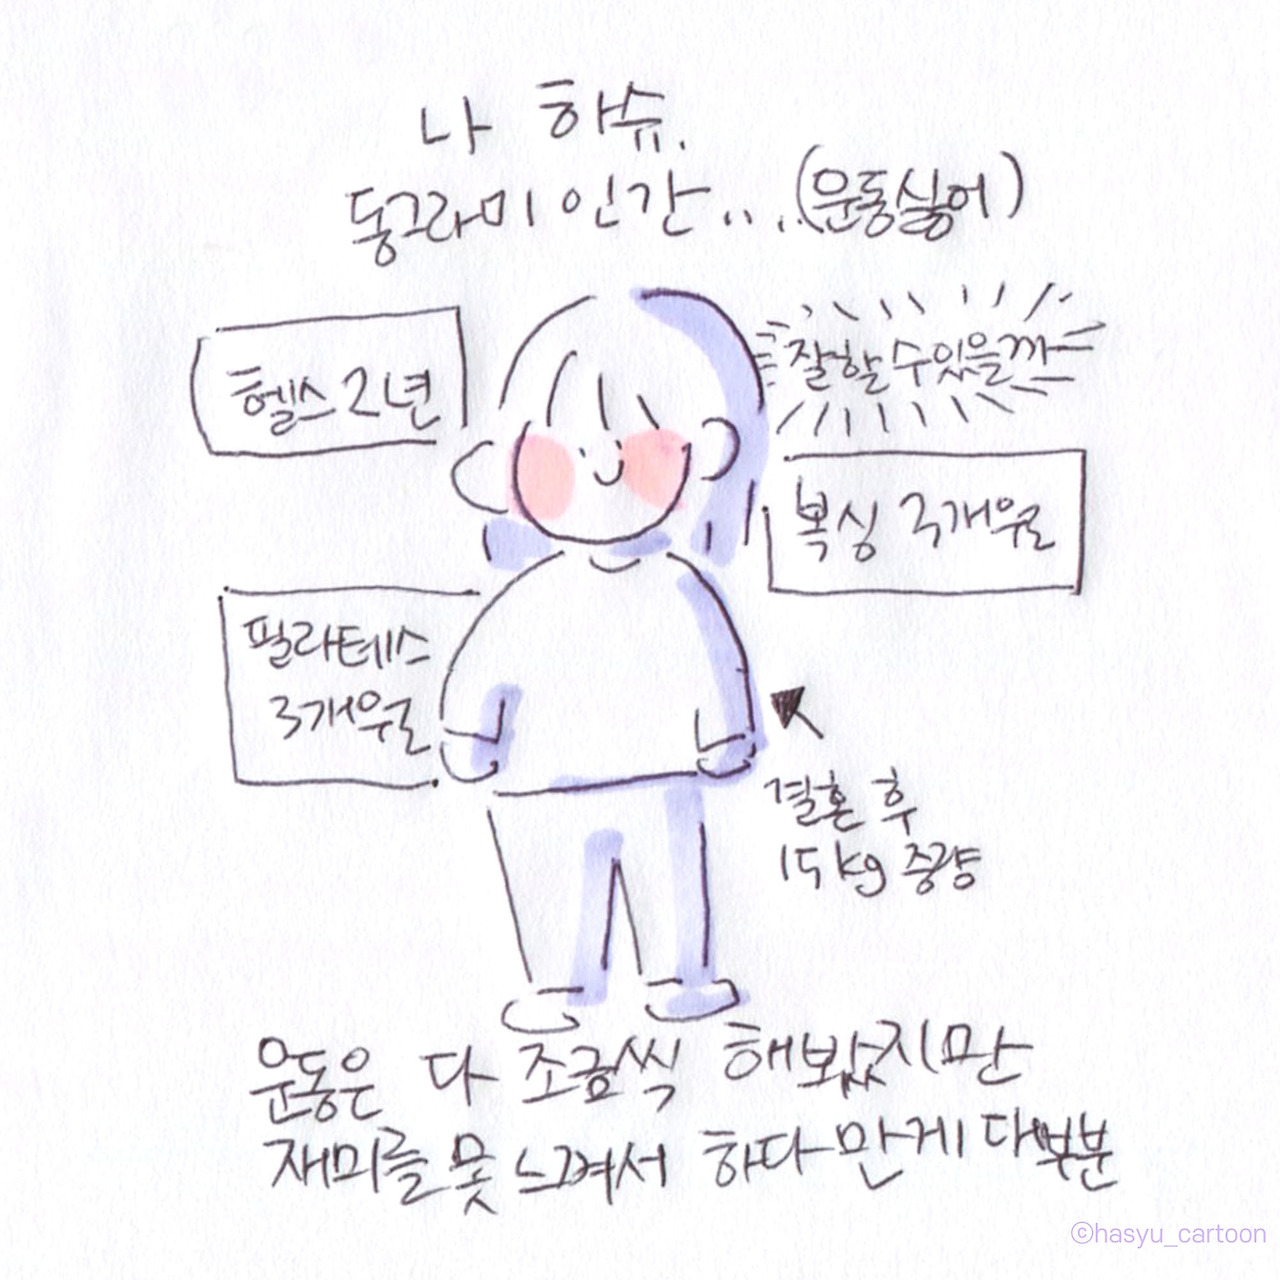 나 하슈.
동그라미 인간....(운동싫어)
헬스 2년
잘할 수 있을까
복싱 3개월
필라테스
3개월
결혼 후
15kg 증량
운동은 다 조금씩 해봤지만
재미를 못 느껴서 하다 만게 대부분
©hasyu_cartoon